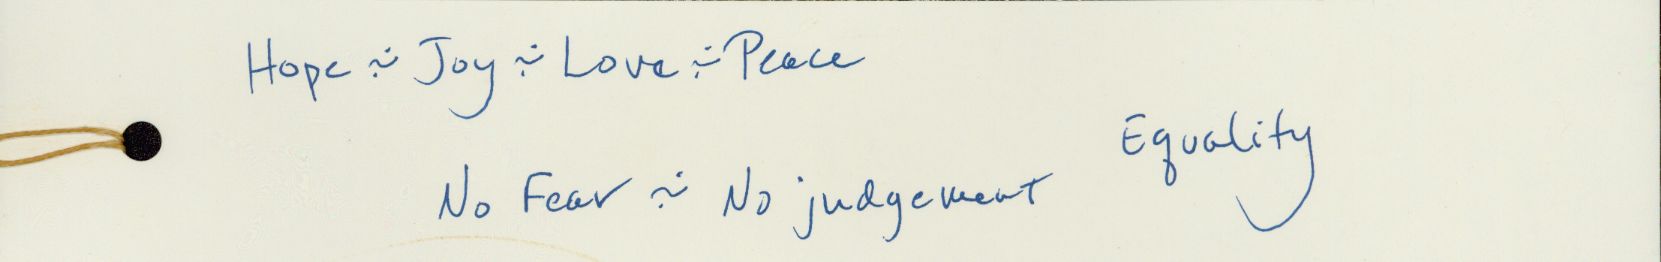 Hope ~ Joy ~ Love ~ Peace
No Fear ~ No judgement
Equality